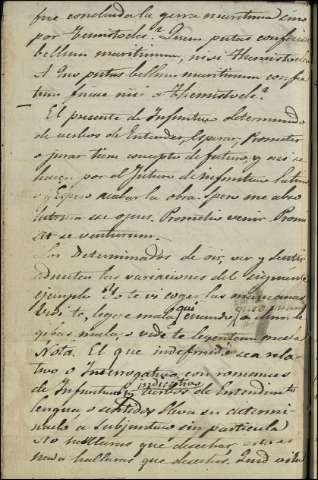 fue concluida la gerra maritima sino
por Temistocles. Quem putas
bellum maritimum, nisi Themistocle
A quo putas bellum maritimum confec
tum fuisse nisi a Themistocle
El presente de Infinitivo determinado
de verbos de Entender, Esperar, Prometer
o jurar tiene concepto de futuro, y asi se
hace por el futuro de infinitivo latino
Espero acabar la obra. Spero me abso
luturum esse opus. Prometio venir Promi
se venturum.
Los Determinados de oir, ver y sentir
admiten las variaciones del siguiente
ejemplo Yo te vi coger las manzanas
Vidi te, legere mala,
mala, o vidi te legentem mala
Nota. El que indefinido sea rela
tivo o Interrogativo con romances
de Infinitivo, indicativo
verbos de Entendimto
lengua, o sentidos lleva su determi
nado a Subjuntivo sin particula
No hallaras qué desechar,
nada hallaras que deseches. Quid